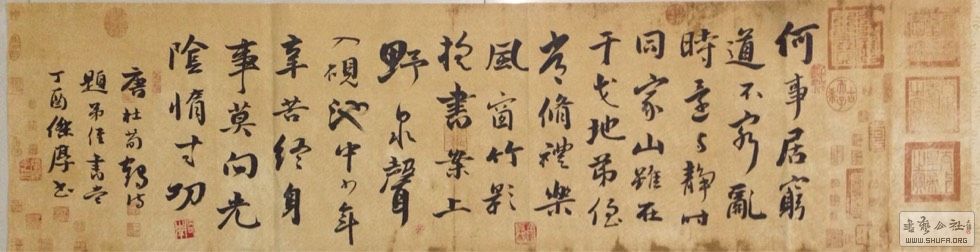 何事居窮
道不窮亂
時還与靜时
同家山雖在
干戈地弟侄
常脩禮樂
風窗竹影
摇書案上
野泉聲
入硯池中少年
辛苦終身
事莫向光
陰惰寸功
唐杜荀鶴诗
題弟侄書堂
丁酉继厚书
書藝公社
WWW.SHUFA.ORG